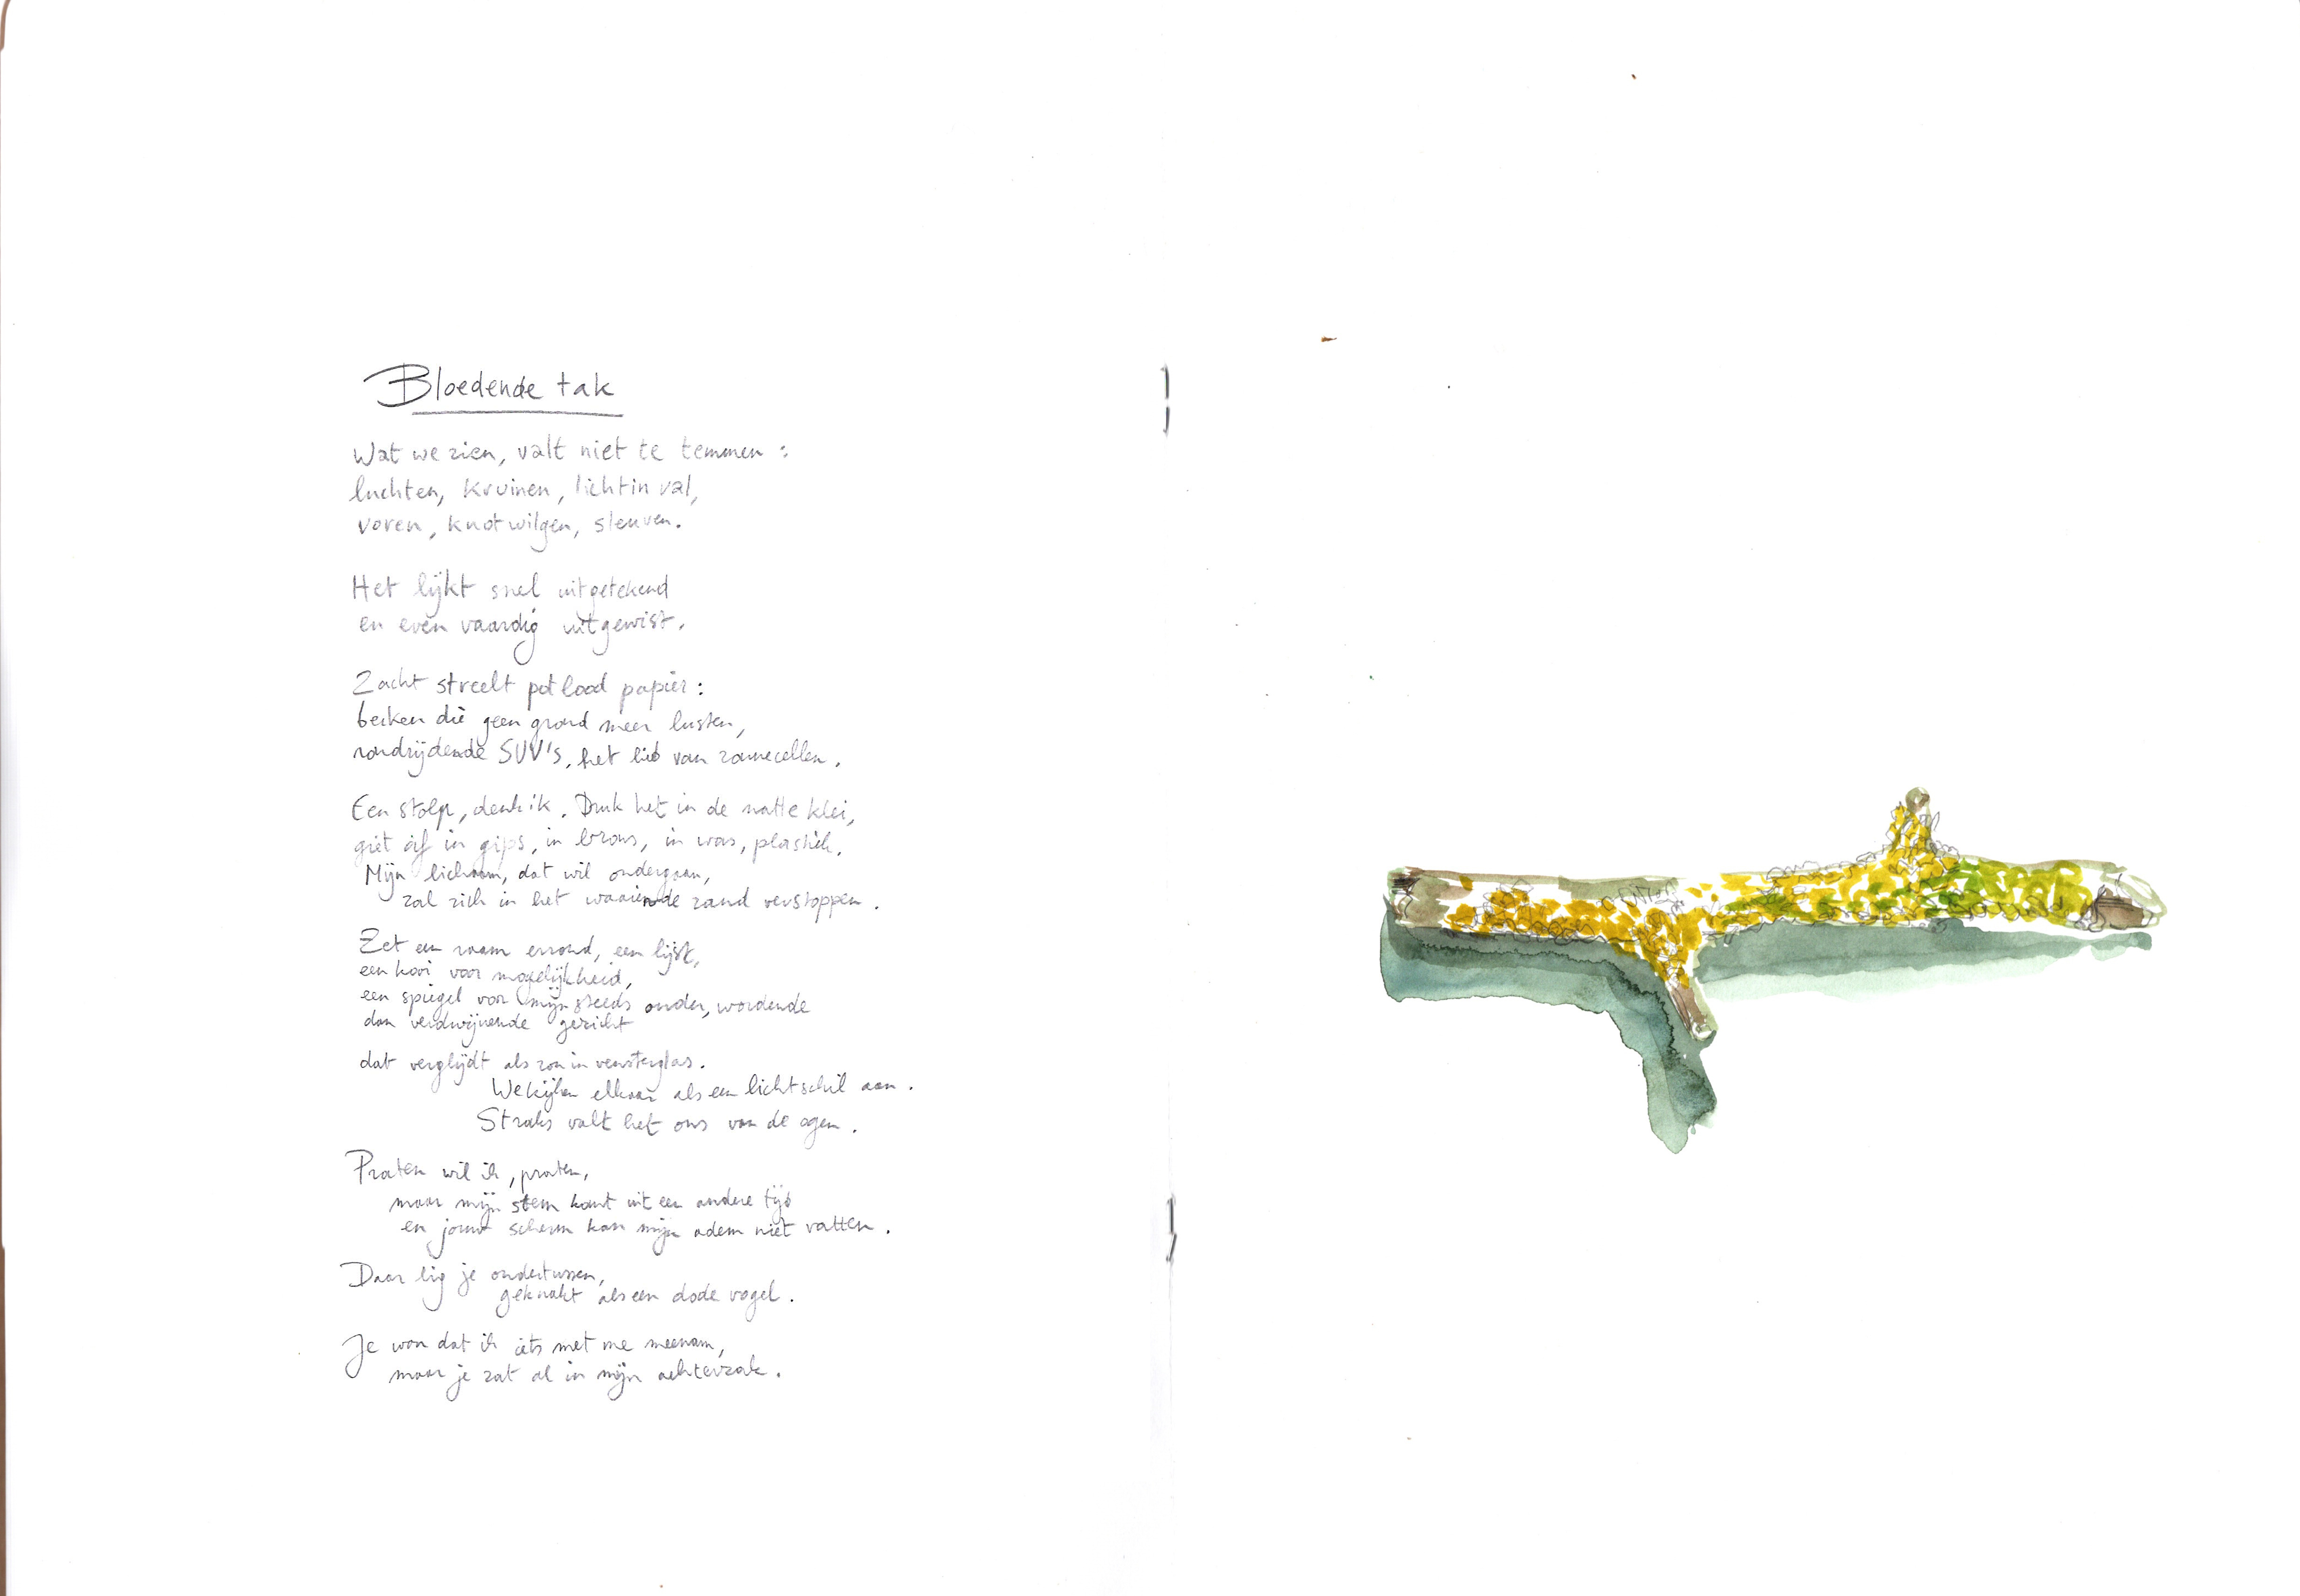 Bloedende tak
Wat we zien, valt niet te temmen :
luchten, kruinen, lichtinval,
voren, knotwilgen, sleuven.
Het lijkt snel uitgetekend
en even vaardig uitgewist.
Zacht streelt potlood papier :
beken die geen grond meer lusten,
rondrijdende SUV's, het lied van zonnecellen.
Een stolp, denk ik. Druk het in de natte klei,
giet af in gips, in brons, in was, plastiek.
Mijn lichaam, dat wil ondergaan,
zal zich in het waaiende zand verstoppen.
Zet een raam errond, een lijst,
een kooi voor mogelijkheid,
een spiegel voor mijn steeds ouder, wordende
dan verdwijnende gezicht
dat verglijdt als zon in vensterglas.
We kijken elkaar als een lichtschil aan.
Straks valt het ons van de ogen.
Praten wil ik, praten,
maar mijn stem komt uit een andere tijd
en jouw scherm kan mijn adem niet vatten.
Daar lig je ondertussen,
geknakt als een dode vogel.
Je wou dat ik iets met me meenam,
maar je zat al in mijn achterzak.